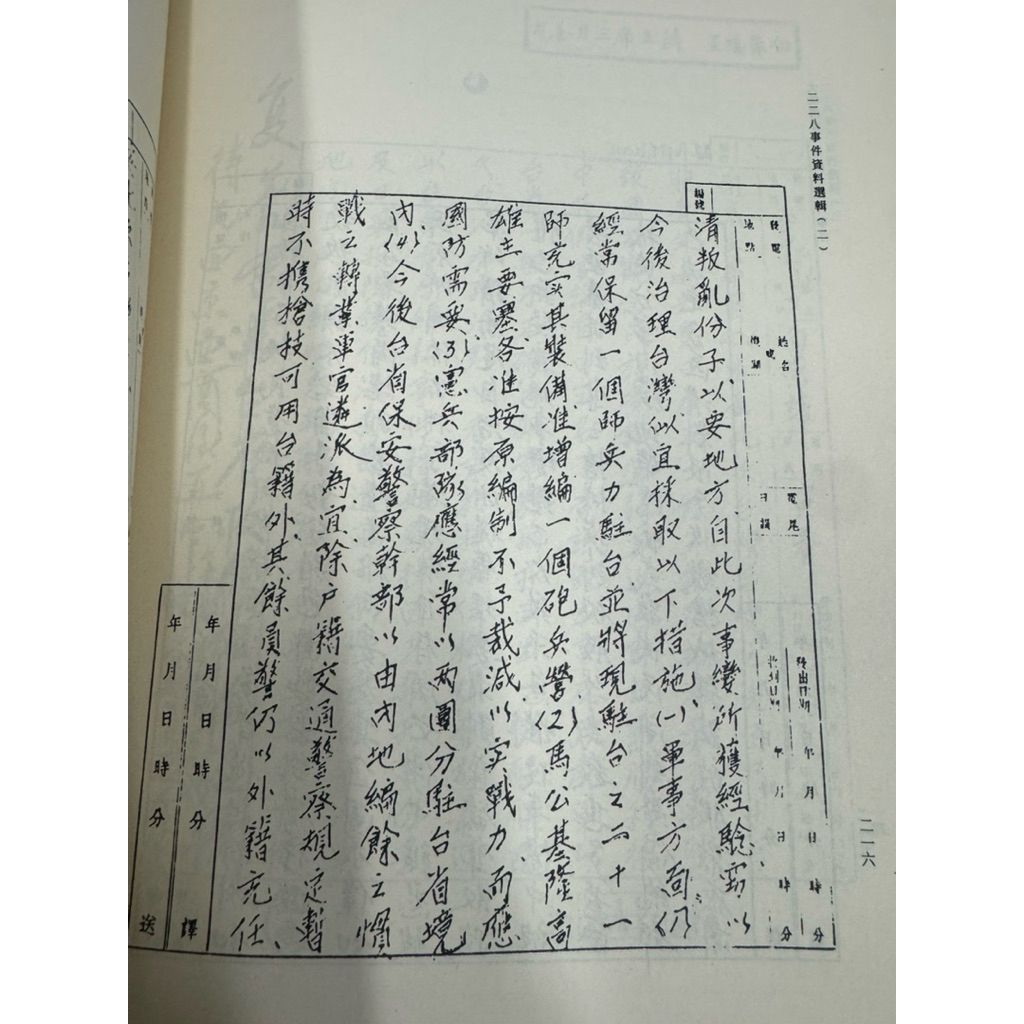 二二八事件資料選輯（二）
二一六
編號
發電地點
日 時 分
年 月 日 時 分
清叛亂份子以要地方自此次事變所獲經驗竊以
今後治理台灣似宜採取以下措施(一)軍事方面(1)
經常保留一個師兵力駐台並將現駐台之二十一
師充实其裝備准增編一個砲兵營(2)馬公基隆高
雄主要塞各准按原編制不予裁減以实戰力而應
國防需要(3)憲兵部隊應經常以兩團分駐台省境
內(4)今後台省保安警察幹部以由內地編餘之慣
戰之轉業軍官遴派為宜除户籍交通警察規定暫
時不携槍技可用台籍外其餘員警仍以外籍充任、
年 月 日 時 分 譯
年 月 日 時 分 送